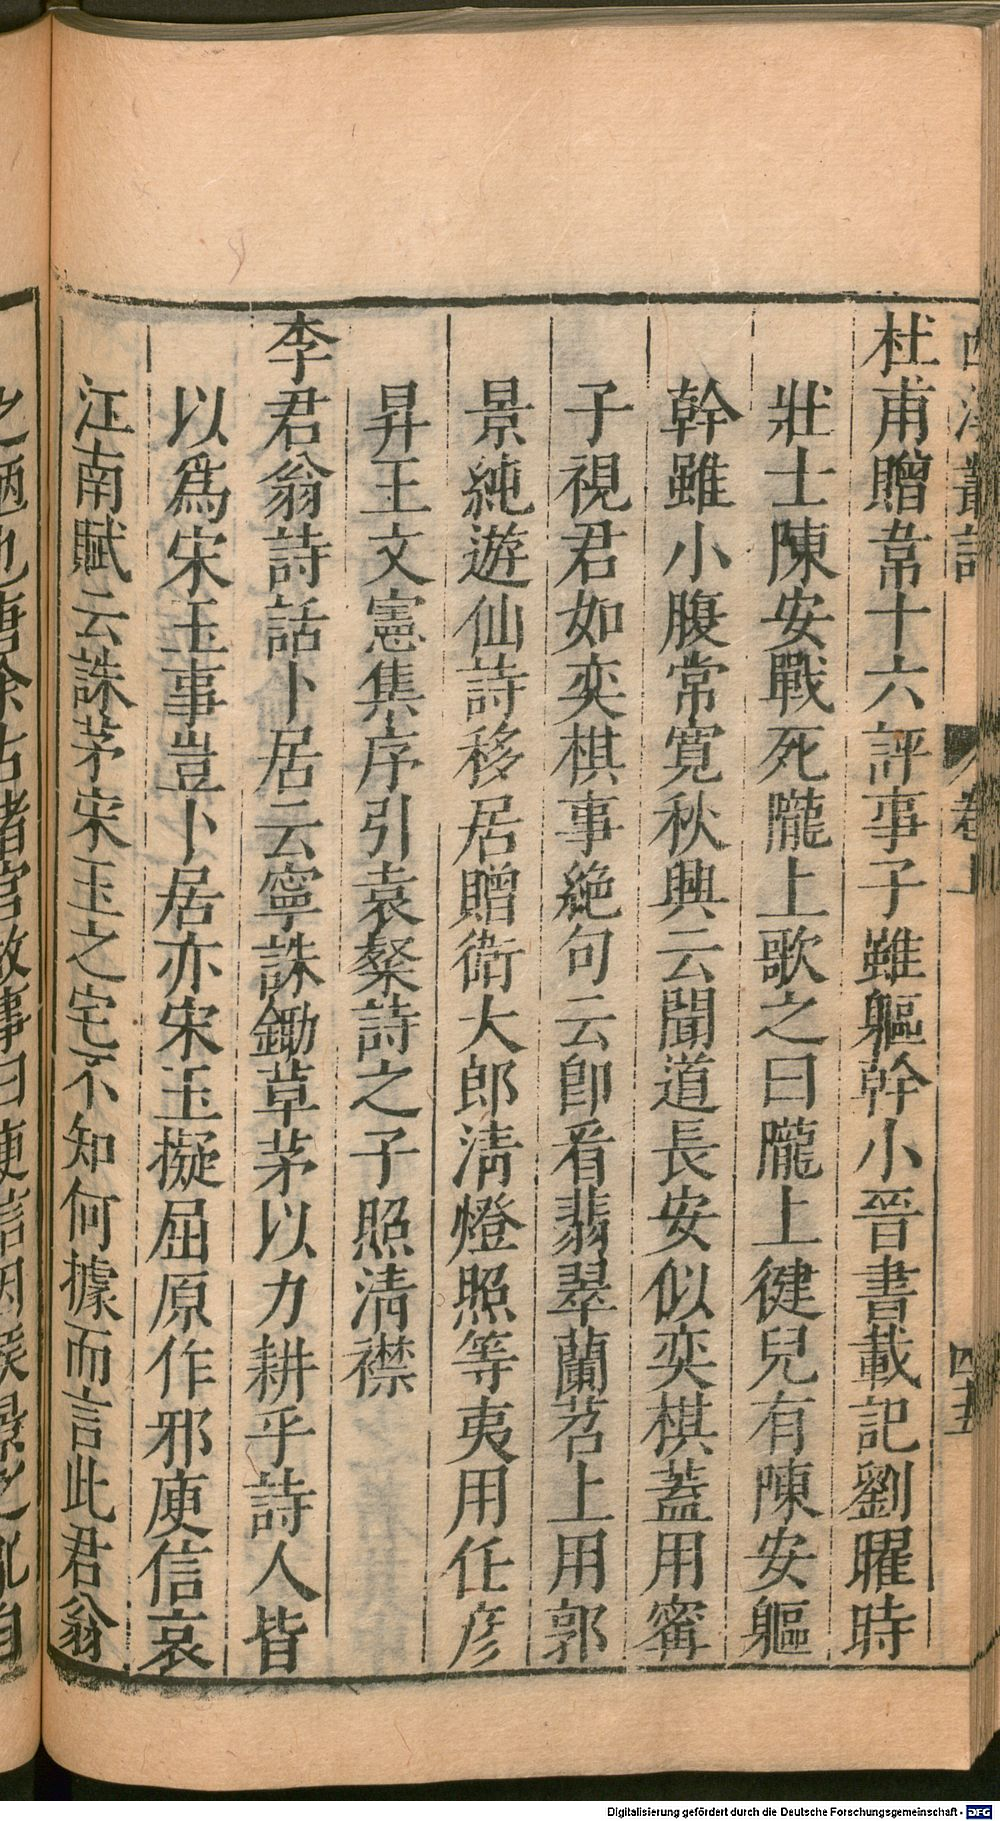 杜甫贈韋十六評事子雖軀幹小晉書載記劉曜時
壯士陳安戰死隴上歌之曰隴上健兒有陳安軀
幹雖小腹常寬秋興云聞道長安似奕棋蓋用甯
子視君如奕棋事絶句云卽看翡翠蘭苕上用郭
景純遊仙詩移居贈衛大郎淸燈照等夷用任彦
昇王文憲集序引袁粲詩之子照淸襟
李君翁詩話卜居云寧誅鋤草茅以力耕乎詩人皆
以爲宋玉事豈卜居亦宋玉擬屈原作邪庾信哀
江南賦云誅茅宋玉之宅不知何據而言此君翁
Digitalisierung gefördert durch die Deutsche Forschungsgemeinschaft - DFG